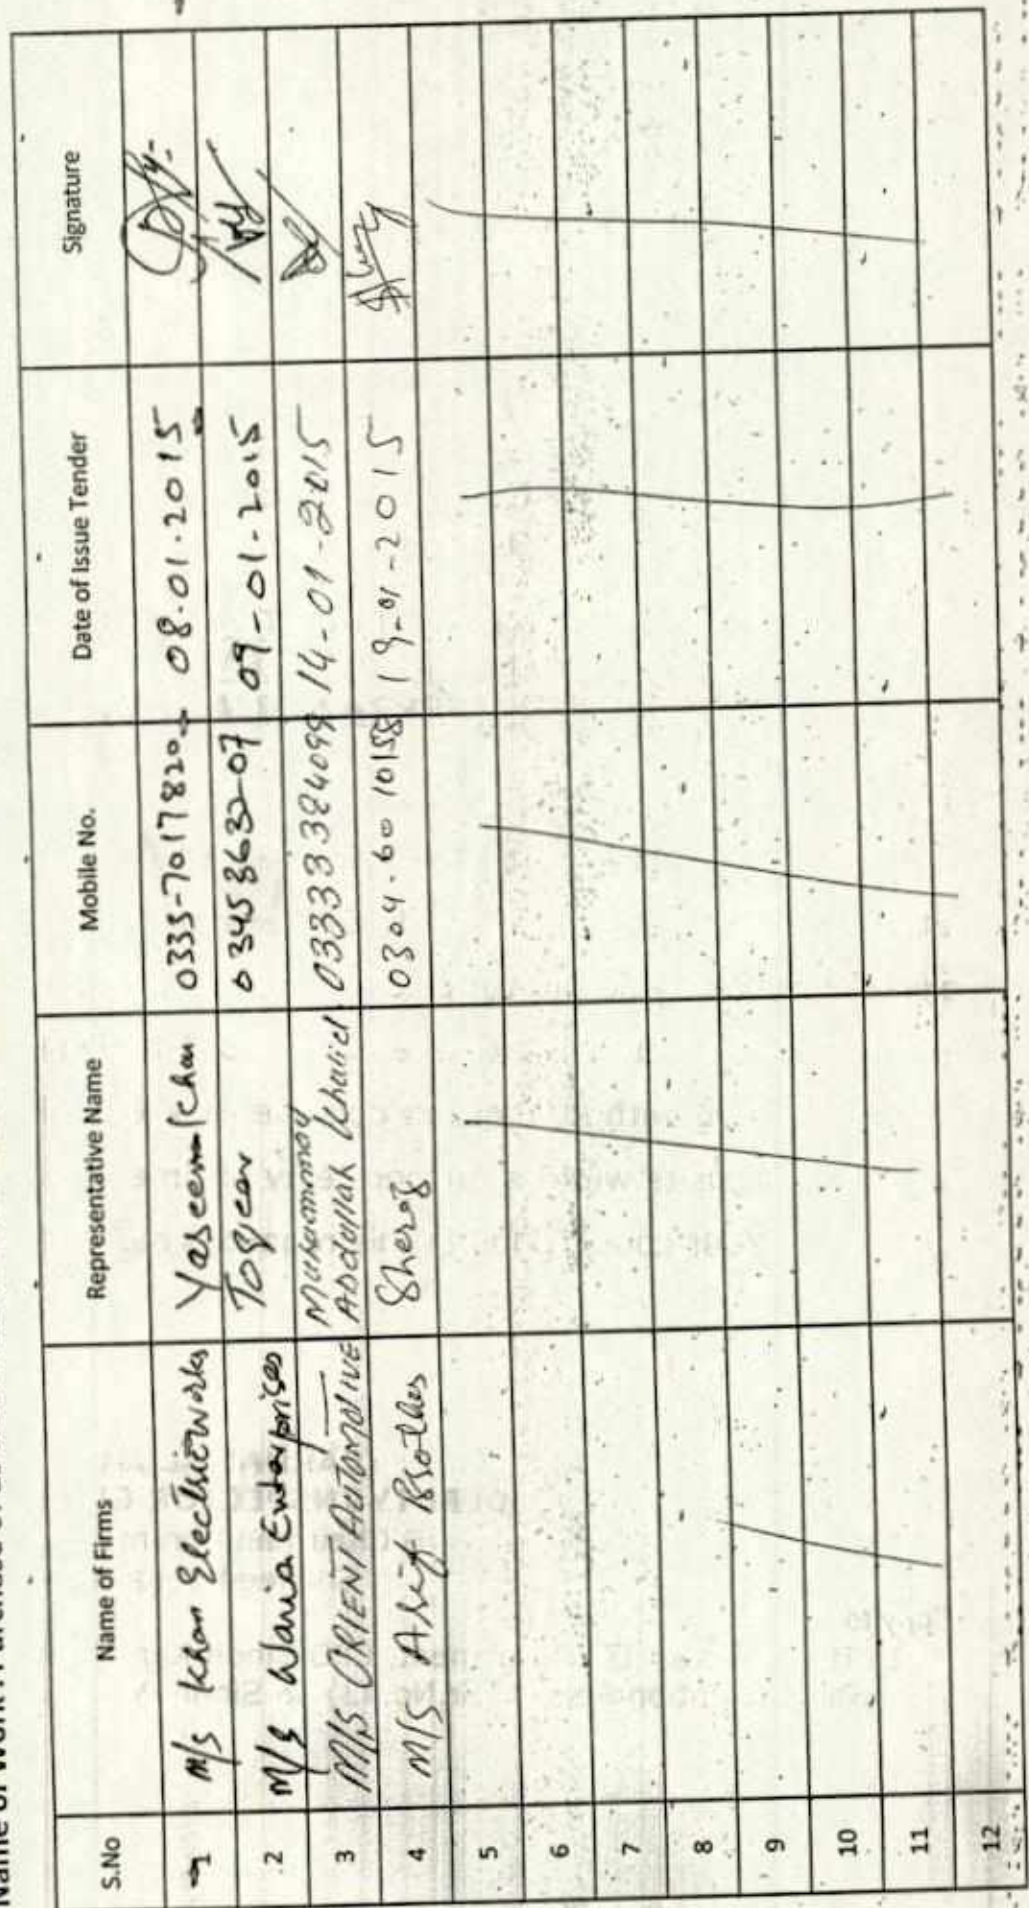 Name of Work Purchase of
S.No Name of Firms Representative Name Mobile No. Date of Issue Tender Signature
1 M/s Khan Electricworks Yaseen Khan 0333-7017820 08-01-2015
2 M/s Waria Enterprises Toqeer 03453632-07 09-01-2015
3 M/S ORIENT AUTOMOTIVE Muhammad Abdullah Khalid 03333384099 14-01-2015
4 M/S Asif Brothers Sheraz 0304-6010158 19-01-2015
5
6
7
8
9
10
11
12